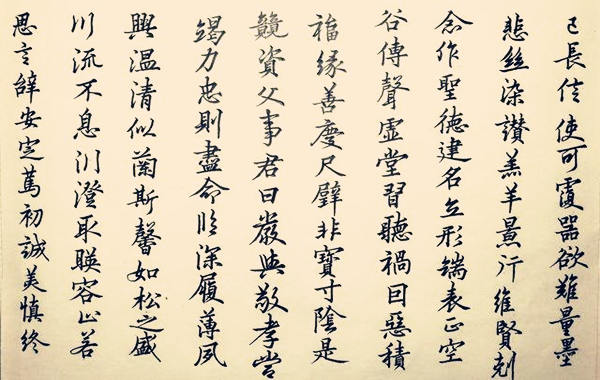 己長信使可覆器欲難量墨
悲絲染讚羔羊景行維賢剋
念作聖德建名立形端表正空
谷傳聲虛堂習聽禍因惡積
福緣善慶尺璧非寶寸陰是
競資父事君曰嚴與敬孝當
竭力忠則盡命臨深履薄夙
興温清似蘭斯馨如松之盛
川流不息淵澄取暎容止若
思言辭安定篤初誠美慎終